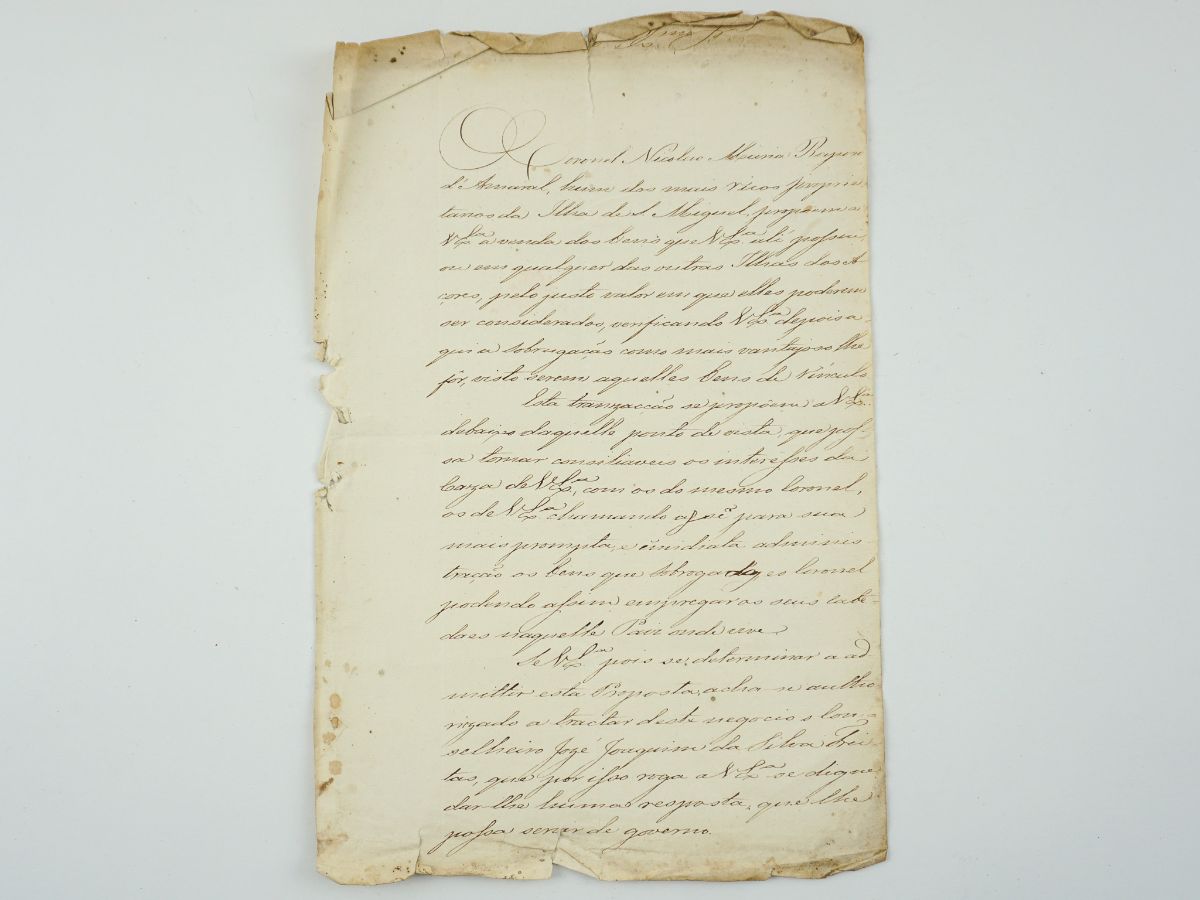 Ex.mo Sr.
O Coronel Nicolao Maria Rapozo
d'Amaral, hum dos mais ricos proprie-
tarios da Ilha de S. Miguel, propoem a
V. Ex.ca a venda dos bens que V. Ex.ca ali possue,
ou em qualquer das outras Ilhas dos A-
çores, pelo justo valor em que elles poderem
ser considerados, verificando V. Ex.ca depois a-
qui a sobrogação como mais vantajoso lhe
fôr, visto serem aquelles bens de Vinculo
Esta tranzacção se propoem a V. Ex.ca
debaixo daquelle ponto de vista, que pos-
sa tornar consiliaveis os interesses da
Caza de V. Ex.ca, com os do mesmo Coronel,
os de V. Ex.ca chamando a si para sua
mais prompta, e imidiata adminis-
tração os bens que sobrogar, e o Coronel
podendo assim empregar os seus cabe-
daes naquelle Paiz onde vive.
Se V. Ex.ca pois se determinar a ad-
mittir esta Proposta, acha-se autho-
rizado a tractar deste negocio o Con-
selheiro Jozé Joaquim da Silva Frei-
tas, que por isso roga a V. Ex.ca se digne
dar-lhe huma resposta, que lhe
possa servir de governo.